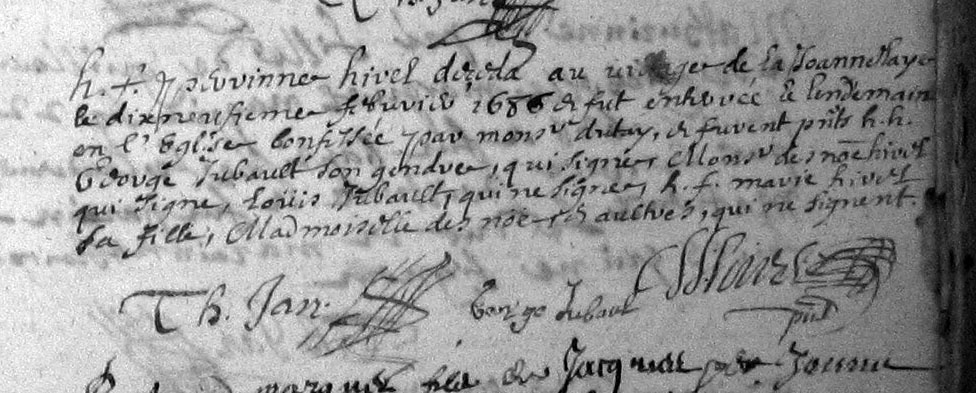 h. f. Perrinne hivel deceda au village de la Joannethaye
le dixneufieme febvrier 1686 & fut enterree le lendemain
en l'Eglise Confessée par monsr dutay, & furent pnts h.h.
George Jubault son gendre, qui signe, Monsr des noe hivel
qui signe, Loüis Jubault, qui ne signe, h. f. marie hivel
sa fille, Madmoiselle des noe, & aultres, qui ne signent.
Th. Jan
George Jubault
marquer fils de Jacques